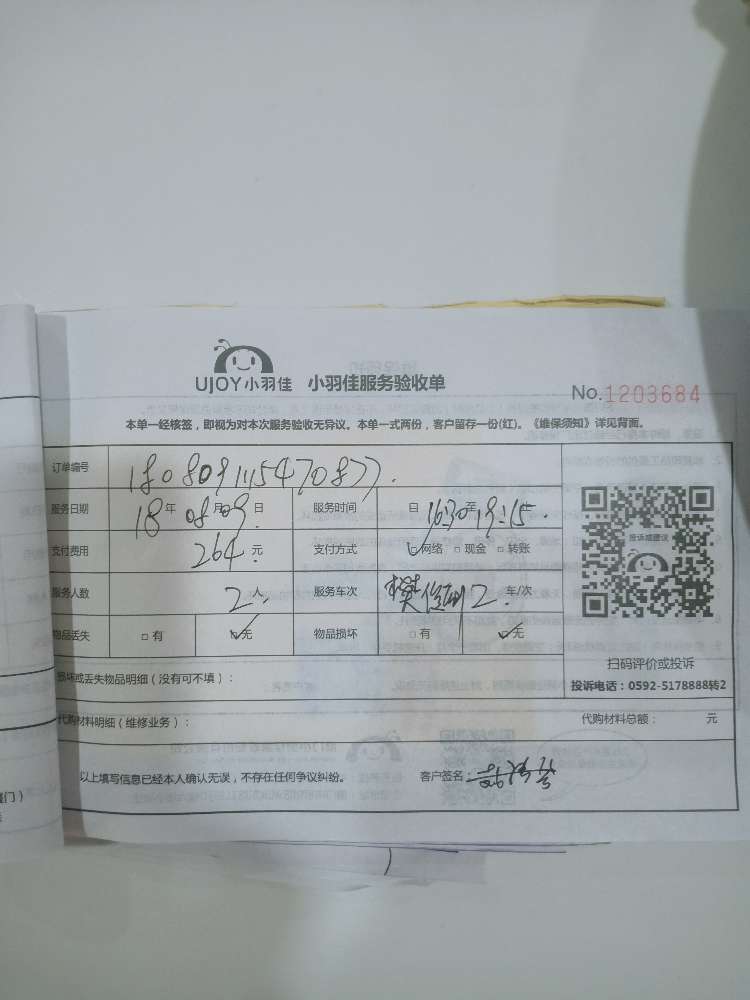 UJOY小羽佳 小羽佳服务验收单
No.1203684
本单一经核签，即视为对本次服务验收无异议。本单一式两份，客户留存一份(红)。《维保须知》详见背面。
订单编号
服务日期 18年08月09日 服务时间 日 16:30年19:15
支付费用 264元 支付方式 网络 现金 转账
投诉或建议
服务人数 2人 服务车次 2车/次
物品丢失 有 无 物品损坏 有 无
扫码评价或投诉
损坏或丢失物品明细（没有可不填）：
投诉电话：0592-5178888转2
代购材料明细（维修业务）：
代购材料总额： 元
以上填写信息已经本人确认无误，不存在任何争议纠纷。 客户签名
门）